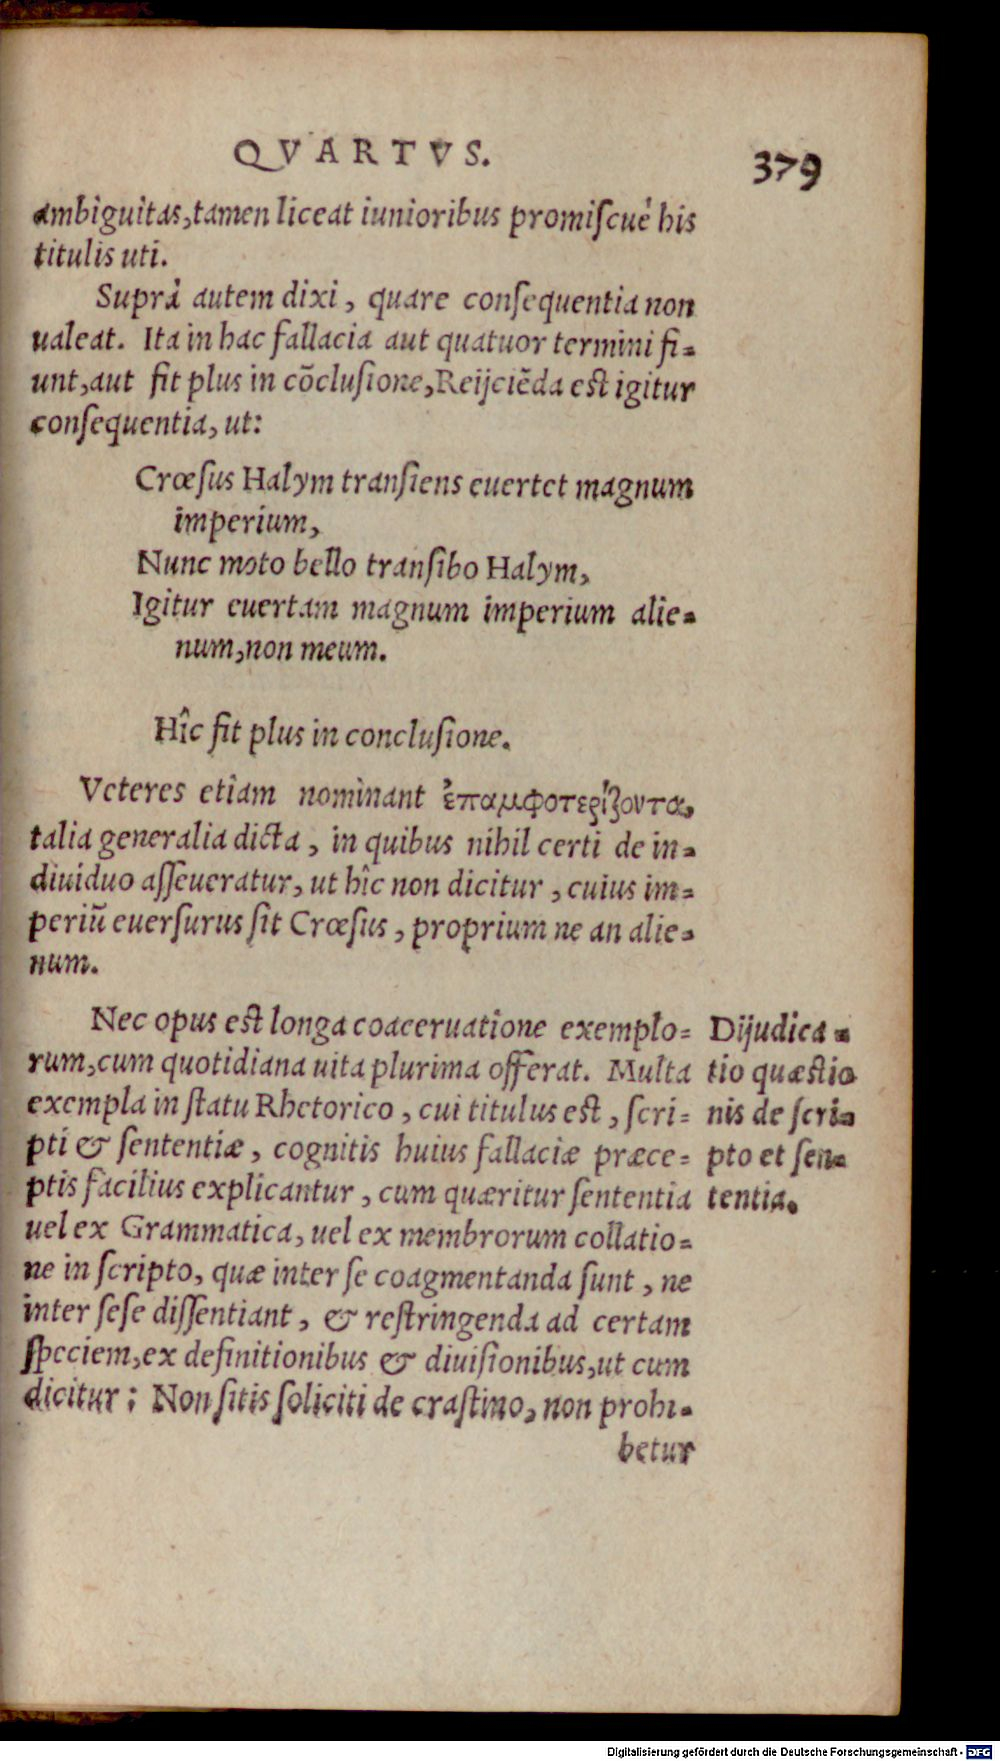 QVARTVS.
379
ambiguitas, tamen liceat iunioribus promiſcuè his
titulis uti.
Suprà autem dixi, quare conſequentia non
ualeat. Ita in hac fallacia aut quatuor termini fi-
unt, aut fit plus in cōcluſione, Reijciēda eſt igitur
conſequentia, ut:
Crœſus Halym tranſiens euertet magnum
imperium,
Nunc moto bello tranſibo Halym,
Igitur euertam magnum imperium alie-
num, non meum.
Hîc fit plus in concluſione.
Veteres etiam nominant ἐπαμφοτερίζοντα,
talia generalia dicta, in quibus nihil certi de in-
diuiduo aſſeueratur, ut hîc non dicitur, cuius im-
periū euerſurus ſit Crœſus, proprium ne an alie-
num.
Nec opus eſt longa coaceruatione exemplo-
rum, cum quotidiana uita plurima offerat. Multa
exempla in ſtatu Rhetorico, cui titulus eſt, ſcri-
pti & ſententiæ, cognitis huius fallaciæ præce-
ptis facilius explicantur, cum quæritur ſententia
uel ex Grammatica, uel ex membrorum collatio-
ne in ſcripto, quæ inter ſe coagmentanda ſunt, ne
inter ſeſe diſſentiant, & reſtringenda ad certam
ſpeciem, ex definitionibus & diuiſionibus, ut cum
dicitur: Non ſitis ſoliciti de craſtino, non prohi-
betur
Dijudica-
tio quæſtio
nis de ſcri-
pto et ſen-
tentia.
Digitalisierung gefördert durch die Deutsche Forschungsgemeinschaft - DFG